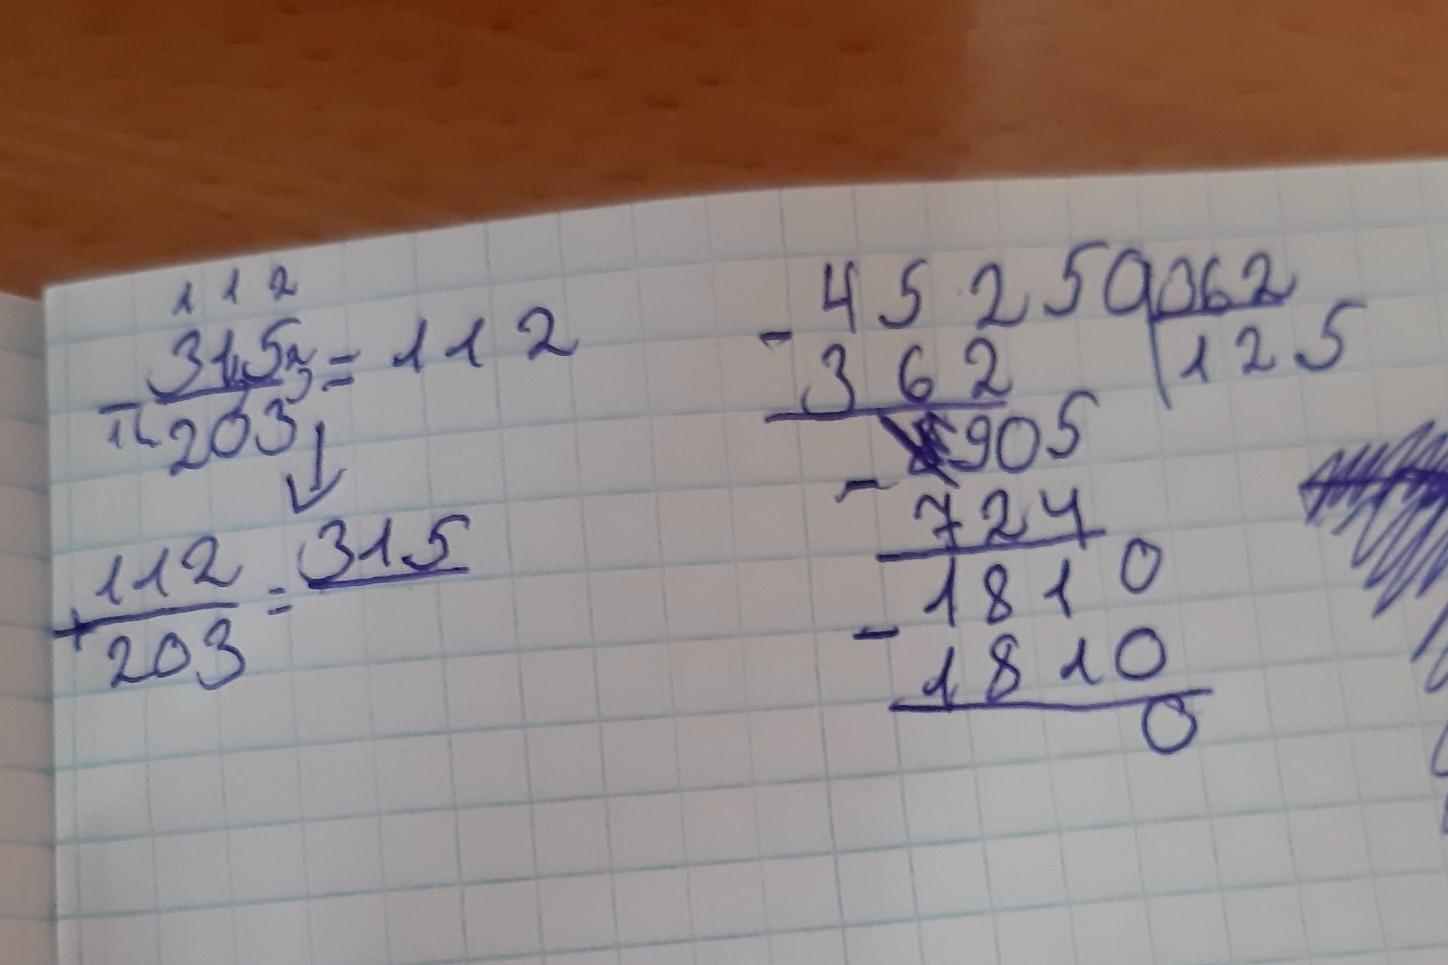 112
315 = 112
203
112 = 315
203
45250 362
- 362 125
905
- 724
1810
- 1810
0